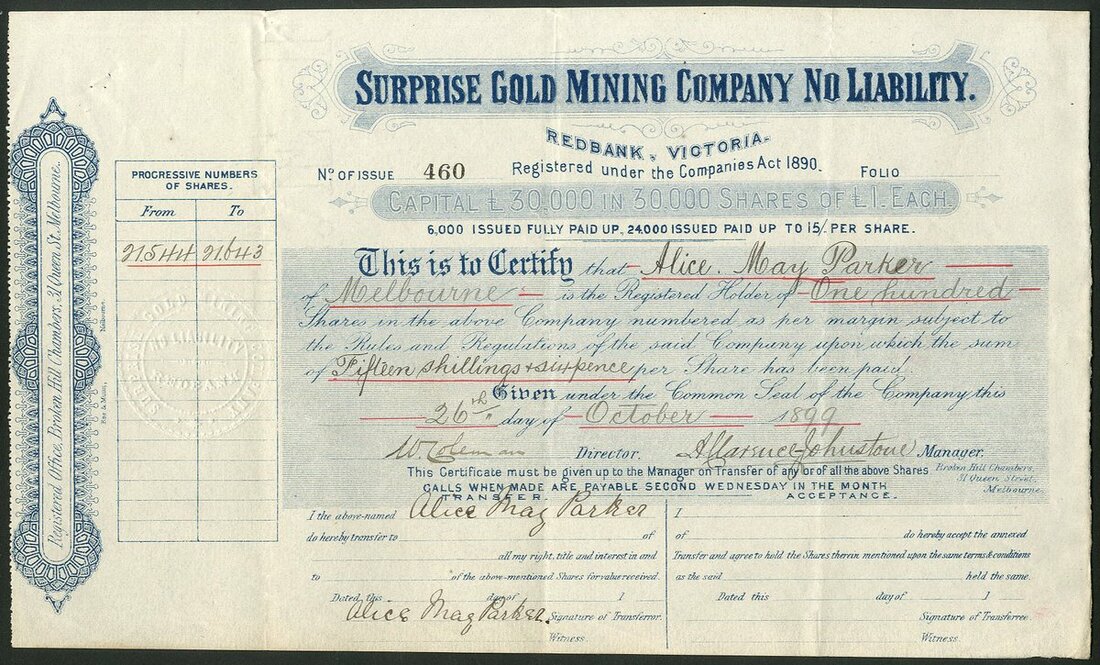 SURPRISE GOLD MINING COMPANY NO LIABILITY.
REDBANK, VICTORIA.
Registered under the Companies Act 1890.
No. OF ISSUE 460
FOLIO
CAPITAL £30,000 IN 30,000 SHARES OF £1. EACH.
6,000 ISSUED FULLY PAID UP, 24,000 ISSUED PAID UP TO 15/- PER SHARE.
Registered Office, Broken Hill Chambers, 31 Queen St. Melbourne.
PROGRESSIVE NUMBERS
OF SHARES.
From To
21544 21643
This is to Certify that Alice. May Parker
of Melbourne is the Registered Holder of One hundred
Shares in the above Company numbered as per margin subject to
the Rules and Regulations of the said Company upon which the sum
of Fifteen shillings & sixpence per Share has been paid.
Given under the Common Seal of the Company this
26th day of October 1899
W Coleman Director. Clarence Johnstone Manager.
This Certificate must be given up to the Manager on Transfer of any or of all the above Shares
Broken Hill Chambers,
31 Queen Street,
Melbourne.
CALLS WHEN MADE ARE PAYABLE SECOND WEDNESDAY IN THE MONTH
TRANSFER.
I the above-named Alice May Parker
do hereby transfer to of
all my right, title and interest in and
to of the above-mentioned Shares for value received.
Dated this day of 1
Alice May Parker. Signature of Transferor.
Witness.
ACCEPTANCE.
I
of do hereby accept the annexed
Transfer and agree to hold the Shares therein mentioned upon the same terms & conditions
as the said held the same.
Dated this day of 1
Signature of Transferee
Witness.